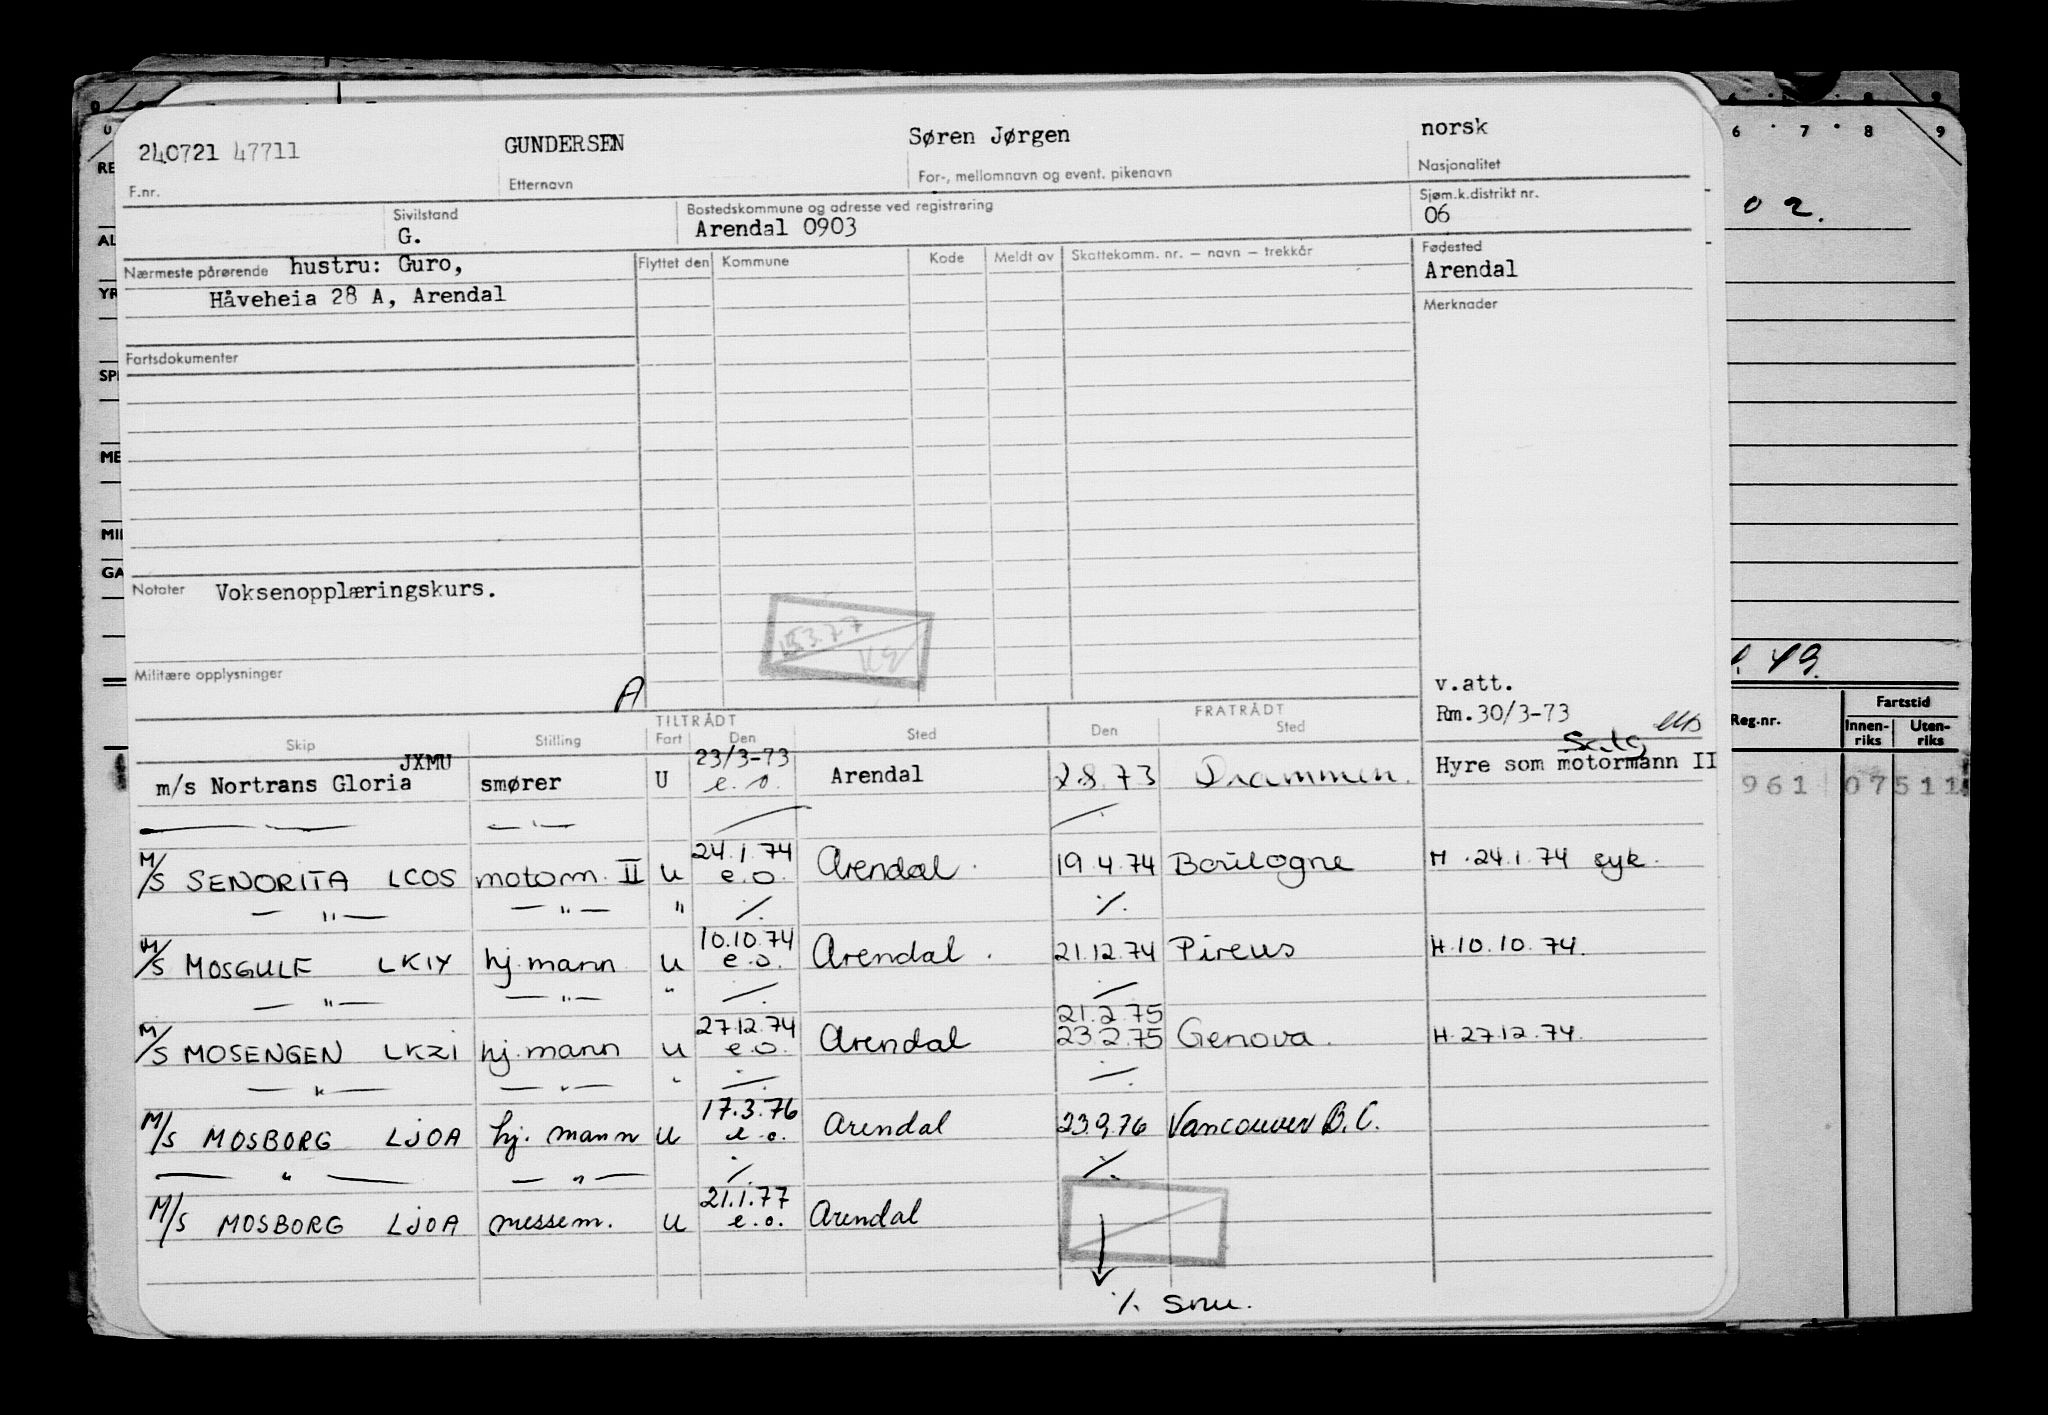 240721 47711 GUNDERSEN Søren Jørgen norsk
F.nr. Etternavn For-, mellomnavn og event. pikenavn Nasjonalitet
Sivilstand Bostedskommune og adresse ved registrering Sjøm.k.distrikt nr.
G. Arendal 0903 06
Nærmeste pårørende hustru: Guro, Flyttet den Kommune Kode Meldt av Skattekomm. nr. – navn – trekkår Fødested
Arendal
Håveheia 28 A, Arendal Merknader
Fartsdokumenter
Notater Voksenopplæringskurs.
Militære opplysninger A
v.att.
Rm.30/3-73
TILTRÅDT FRATRÅDT
Skip Stilling Fart Den Sted Den Sted
JXMU 23/3-73
m/s Nortrans Gloria smører U e.o. Arendal 2.8.73 Drammen. Hyre som motormann II
— —"— ⁒ ⁒
M/S SENORITA LCOS motorm. II U 24.1.74 e.o. Arendal 19.4.74 Boulogne H.24.1.74 syk.
— " — — " — " ⁒ ⁒
M/S MOSGULF LKIY hj.mann U 10.10.74 e.o. Arendal. 21.12.74 Pireus H.10.10.74.
— " — — " — " ⁒ ⁒
21.2.75
M/S MOSENGEN LKZI hj.mann U 27.12.74 e.o. Arendal 23.2.75 Genova. H.27.12.74.
— " — — " — " ⁒ ⁒
M/S MOSBORG LJOA hj. mann U 17.3.76 e.o. Arendal 23.9.76 Vancouver B.C.
— " — — " — ⁒ ⁒
M/S MOSBORG LJOA messem. U 21.1.77 e.o. Arendal
⁒ snu.
6 7 8 9
02.
49.
Reg.nr. Fartstid
Innenriks Utenriks
961 07511